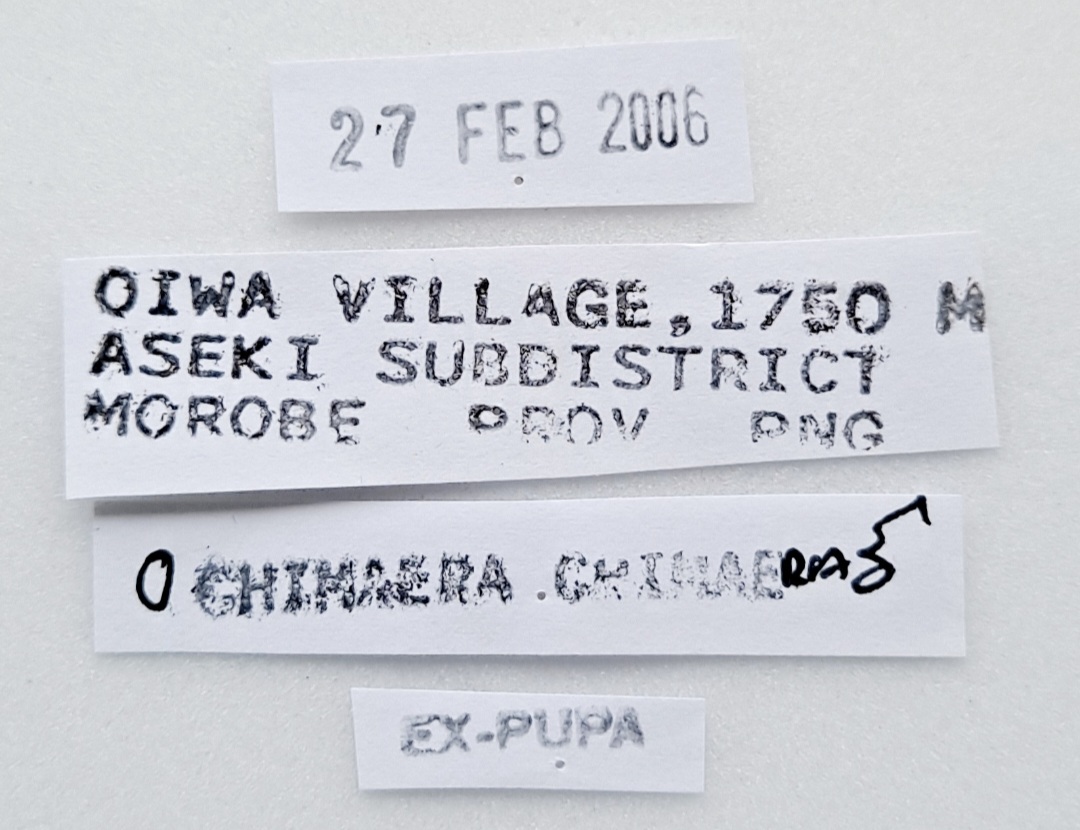 27 FEB 2006
OIWA VILLAGE,1750 M
ASEKI SUBDISTRICT
MOROBE PROV PNG
O CHIMAERA CHIMAERA ♂
EX-PUPA